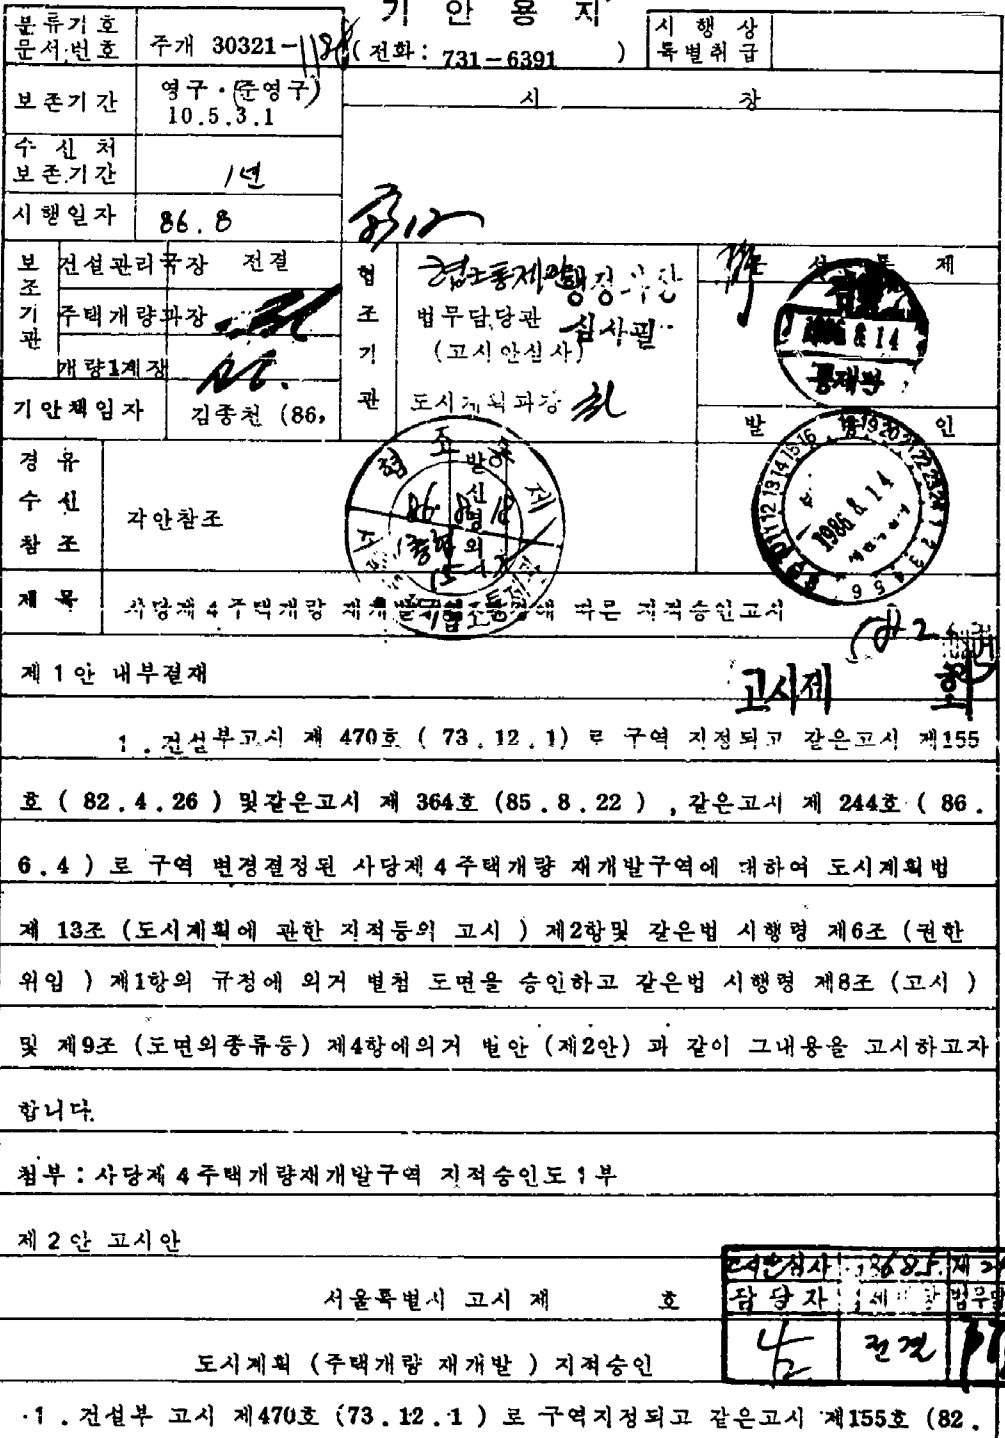 기 안 용 지
분류기호
문서번호
주개 30321-
(전화: 731-6391 )
시 행 상
특별취급
보존기간
영구·(준영구)
10.5.3.1
시 장
수 신 처
보존기간
1년
시행일자
86.8
보조기관
건설관리국장 전결
주택개량과장
개량1계장
기안책임자
김종천 (86,
협조기관
법무담당관
(고시안심사)
심사필
도시계획과장
문 서 통 제
1986.8.14
통제관
발 인
1986.8.14
경 유
수 신
참 조
각안참조
협 조
86 8 18
제 목
사당제4주택개량 재개발구역 따른 지적승인고시
제1안 내부결재
고시제
1. 건설부고시 제 470호 ( 73.12.1) 로 구역 지정되고 같은고시 제155
호 ( 82.4.26 ) 및같은고시 제 364호 (85.8.22 ) ,같은고시 제 244호 ( 86.
6.4 ) 로 구역 변경결정된 사당제4주택개량 재개발구역에 대하여 도시계획법
제 13조 (도시계획에 관한 지적등의 고시 ) 제2항및 같은법 시행령 제6조 (권한
위임 ) 제1항의 규정에 의거 별첨 도면을 승인하고 같은법 시행령 제8조 (고시 )
및 제9조 (도면의종류등) 제4항에의거 별안 (제2안) 과 같이 그내용을 고시하고자
합니다.
첨부 : 사당제4주택개량재개발구역 지적승인도 1부
제2안 고시안
고시안심사
담당자
전결
서울특별시 고시 제 호
도시계획 (주택개량 재개발 ) 지적승인
1. 건설부 고시 제470호 (73.12.1 ) 로 구역지정되고 같은고시 제155호 (82.